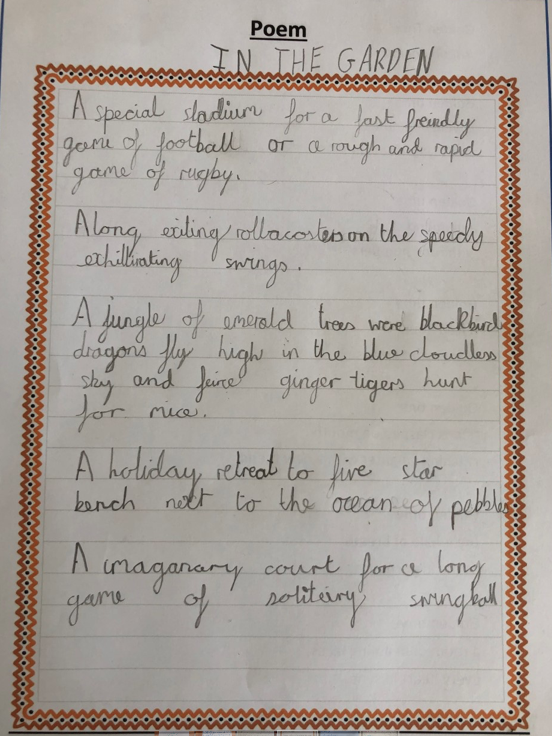 Poem
IN THE GARDEN
A special stadium for a fast freindly
game of football or a rough and rapid
game of rugby.
Along exiling rollacosters on the speedy
exhillirating swings.
A jungle of emerald trees were blackbird
dragons fly high in the blue cloudless
sky and feirce ginger tigers hunt
for mice.
A holiday retreat to five star
bench next to the ocean of pebbles
A imaganary court for a long
game of soliteiry swingball